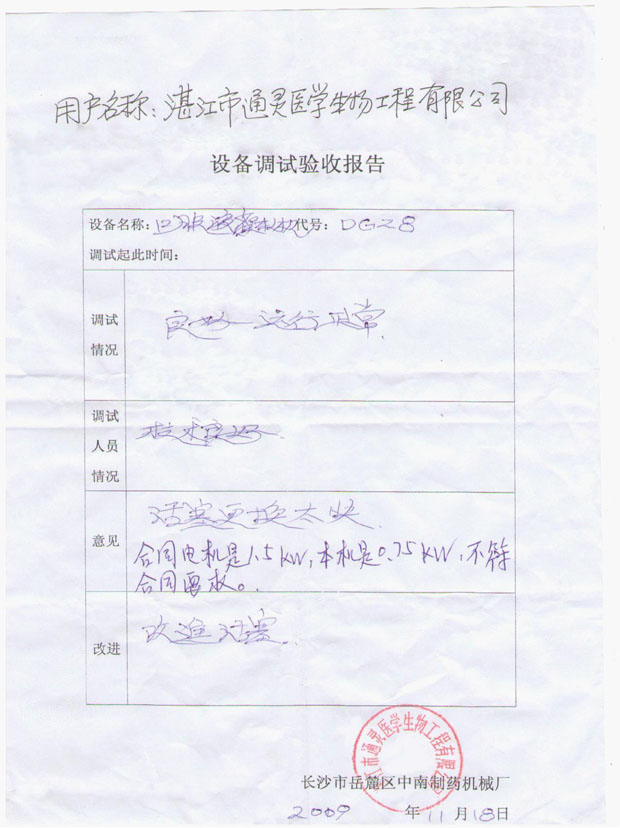 用户名称：湛江市通灵医学生物工程有限公司
设备调试验收报告
设备名称：口服液灌装机代号：DGZ8
调试起此时间：
调试
情况
良好 运行正常.
调试
人员
情况
技术良好.
意见
活塞更换太快.
合同电机是1.5KW，本机是0.75KW，不符
合同要求。
改进
改进活塞.
湛江市通灵医学生物工程有限公司
长沙市岳麓区中南制药机械厂
2009 年 11 月 18日